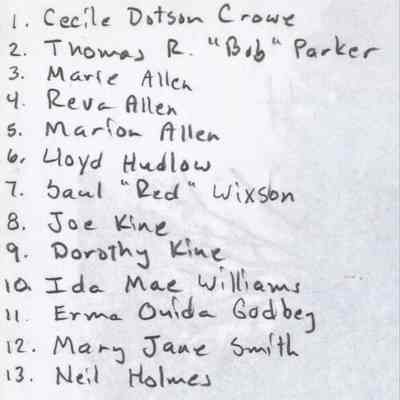 1. Cecile Dotson Crowe
2. Thomas R. "Bob" Parker
3. Marie Allen
4. Reva Allen
5. Marion Allen
6. Lloyd Hudlow
7. Saul "Red" Wixson
8. Joe Kine
9. Dorothy Kine
10. Ida Mae Williams
11. Erma Ouida Godbey
12. Mary Jane Smith
13. Neil Holmes